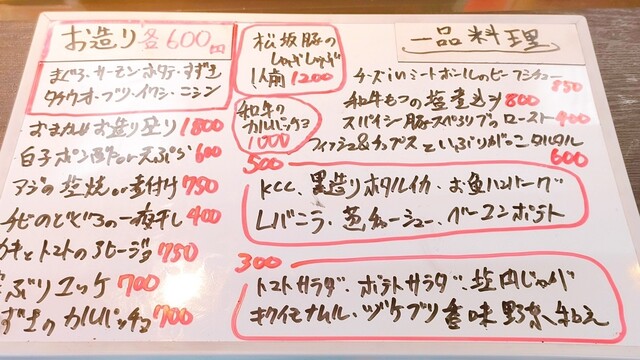 お造り各600円
まぐろ・サーモン・ホタテ・すずき
タチウオ・ブリ・イワシ・ニシン
おまかせお造り盛り1800
白子ポン酢or天ぷら600
アジの塩焼or煮付け750
チビのどぐろの一夜干し400
カキとトマトのアヒージョ750
ぶりユッケ700
ずきのカルパッチョ700
松坂豚の
しゃぶしゃぶ
1人前1200
和牛の
カルパッチョ
1000
一品料理
チーズinミートボールのビーフシチュー850
和牛もつの塩煮込み800
スパイシー豚スペアリブのロースト400
フィッシュ&チップスといぶりがっこタルタル
600
500
KCC、黒造りホタルイカ、お魚ハンバーグ
レバニラ・葱チャーシュー、ベーコンポテト
300
トマトサラダ・ポテトサラダ・塩肉じゃが
キクイモナムル・ヅケブリ香味野菜和え